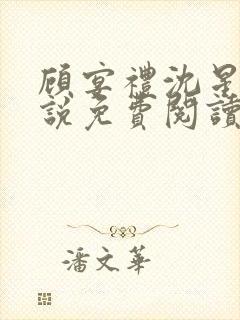 顾宴禮沈星
說免費閱讀
潘文華